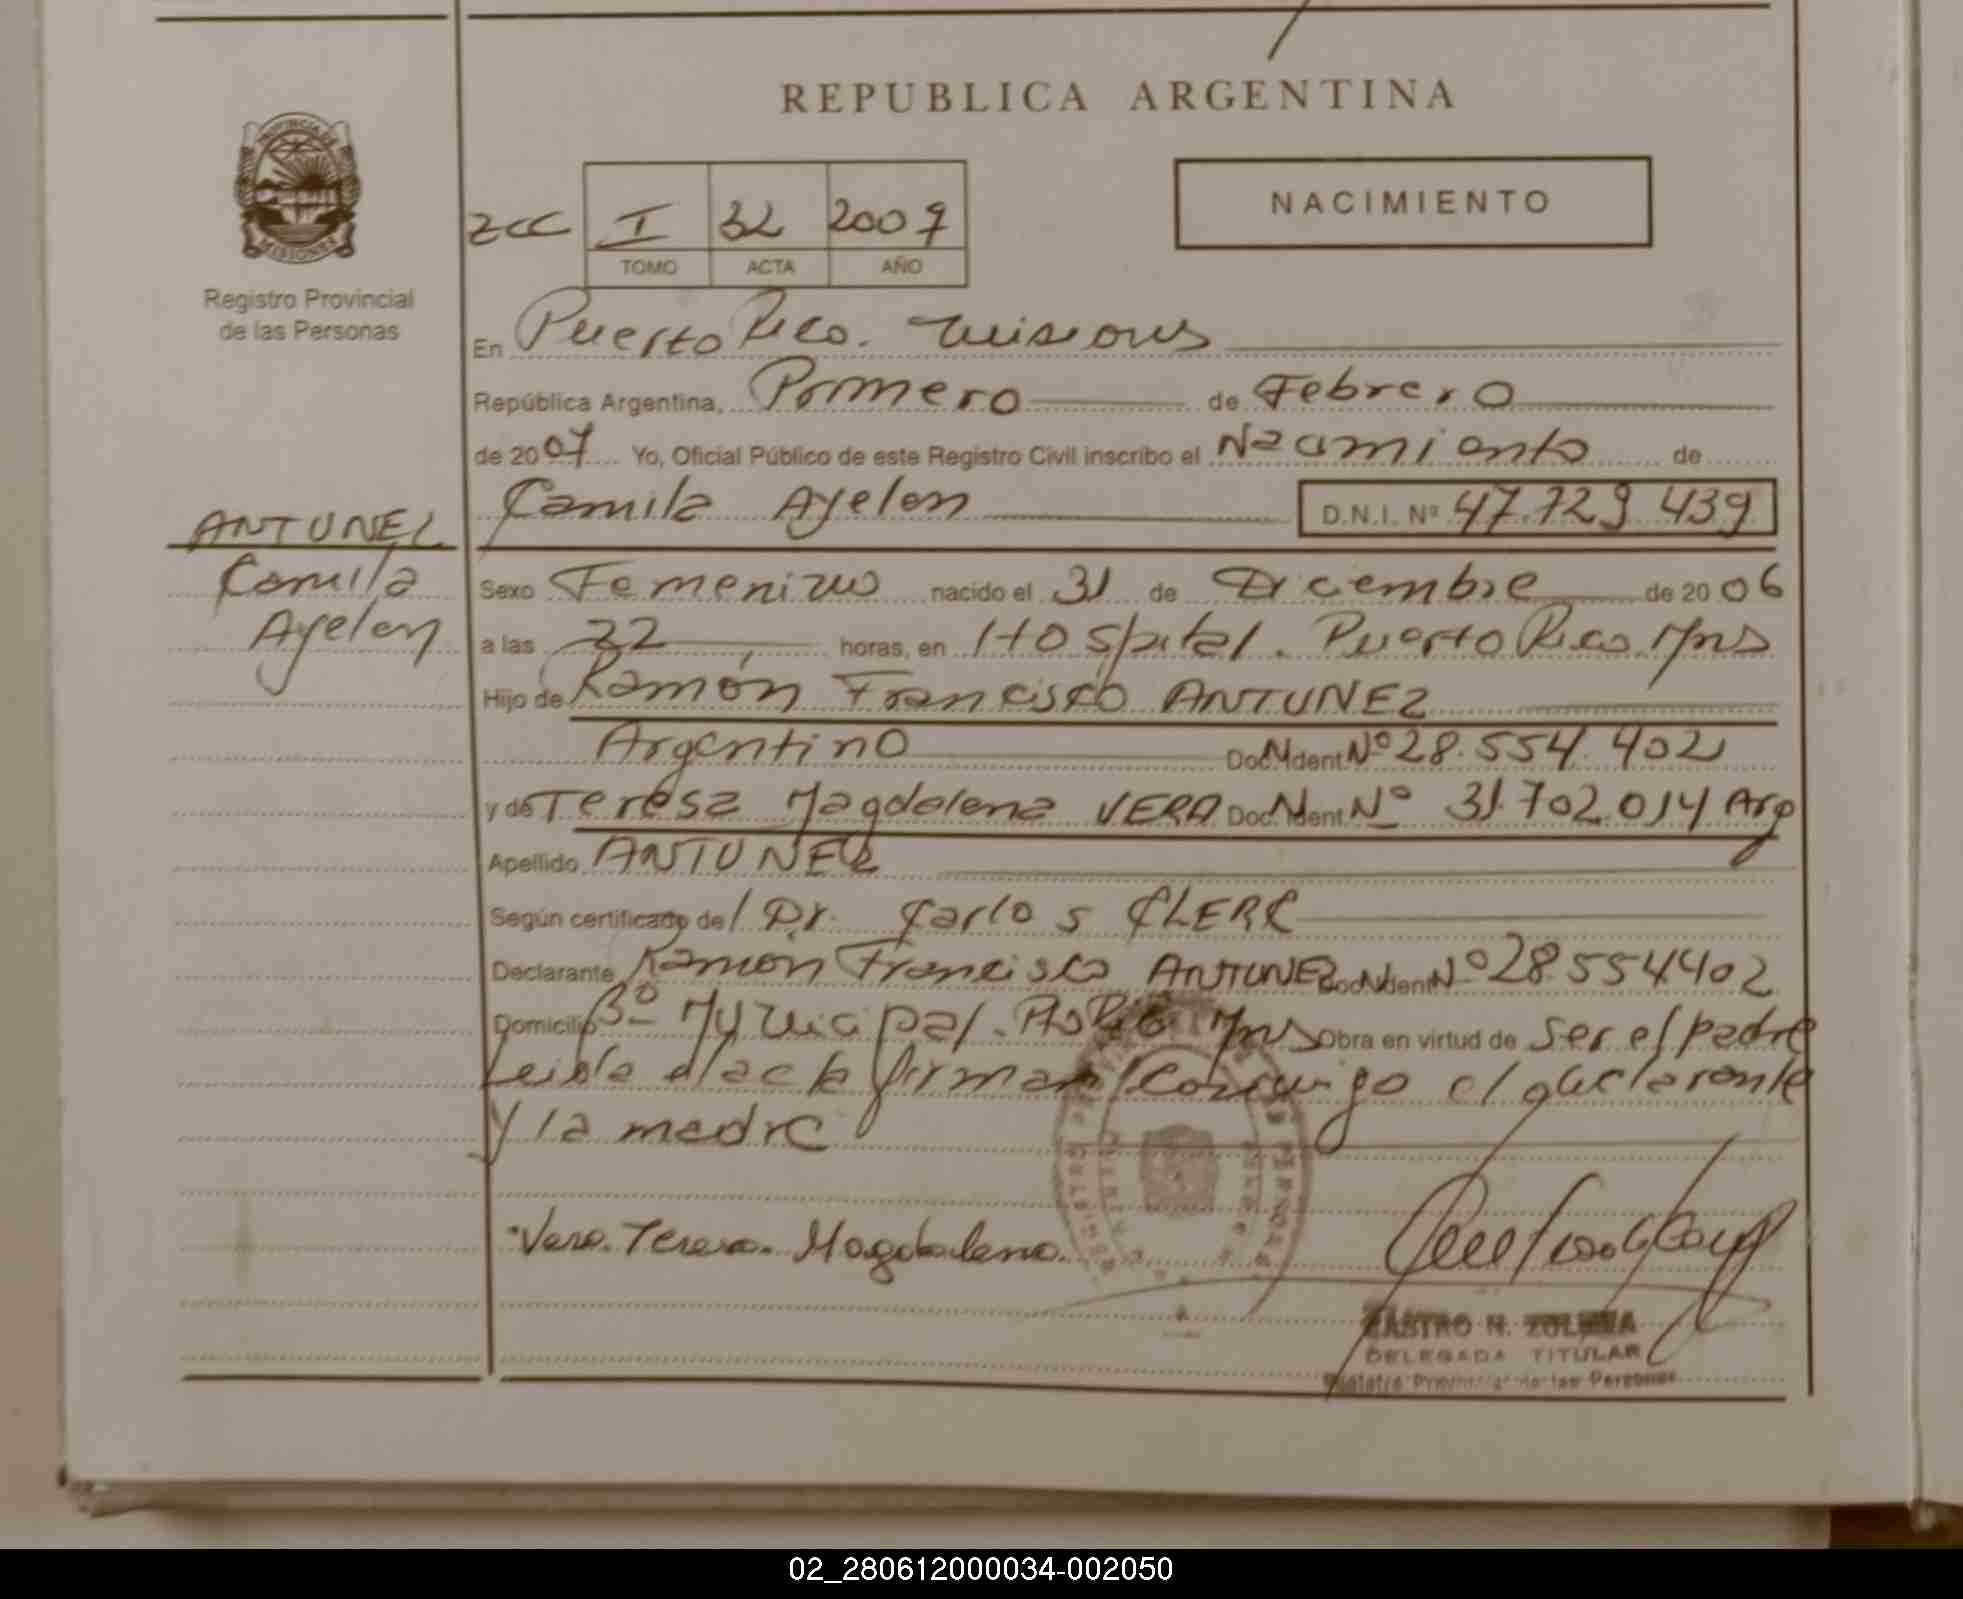 REPUBLICA ARGENTINA
PROVINCIA DE
MISIONES
Registro Provincial
de las Personas
NACIMIENTO
zcc I 32 2007
TOMO ACTA AÑO
En Puerto Rico. Misiones
República Argentina, Primero de Febrero
de 2007 Yo, Oficial Público de este Registro Civil inscribo el Nacimiento de
Camila Ayelen D.N.I. Nº 47.729 439
ANTUNEZ
Camila
Ayelen
Sexo Femenino nacido el 31 de Diciembre de 2006
a las 22 horas, en Hospital. Puerto Rico. Mns
Hijo de Ramón Francisco ANTUNEZ
Argentino Doc. Ident. Nº 28.554.402
y de Teresa Magdalena VERA Doc. Ident. Nº 31.702.014 Arg
Apellido ANTUNEZ
Según certificado de Dr. Carlos CLERC
Declarante Ramón Francisco ANTUNEZ Doc. Ident. Nº 28.554.402
Domicilio Bº Municipal. Pto Rico Mns Obra en virtud de ser el padre
Leida el acta firman conmigo el declarante
y la madre
Vera. Teresa. Magdalena.
CASTRO N. ZULEMA
DELEGADA TITULAR
Registro Provincial de las Personas
02_280612000034-002050